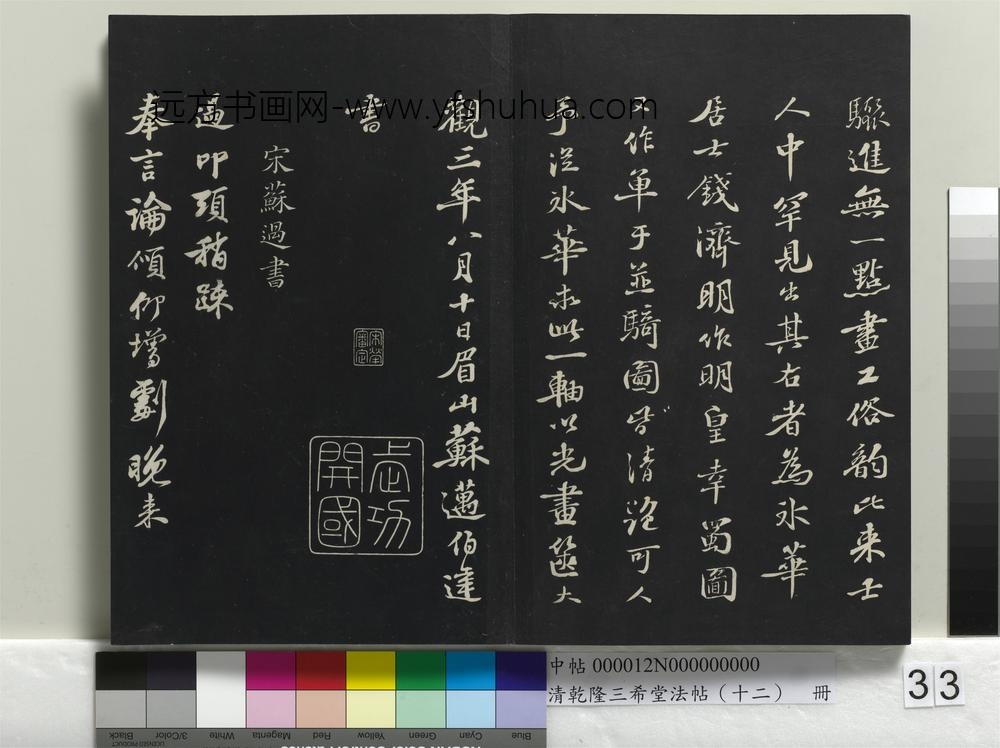 驟進無一點畫工俗韵比来士
人中罕見出其右者為氷華
居士錢濟明作明皇幸蜀圖
又作單于並騎圖皆清絕可人
予從氷華求此一軸以光畫篋大
觀三年八月十日眉山蘇邁伯達
書
宋蘇過書
過叩頭稍疎
奉言論傾仰增劇晚来
武功
開國
远方书画网-www.yfshuhua.com
中帖 000012N000000000
清乾隆三希堂法帖（十二） 冊
33
Black
3/Color
White
Magenta
Red
Yellow
Green
Cyan
Blue